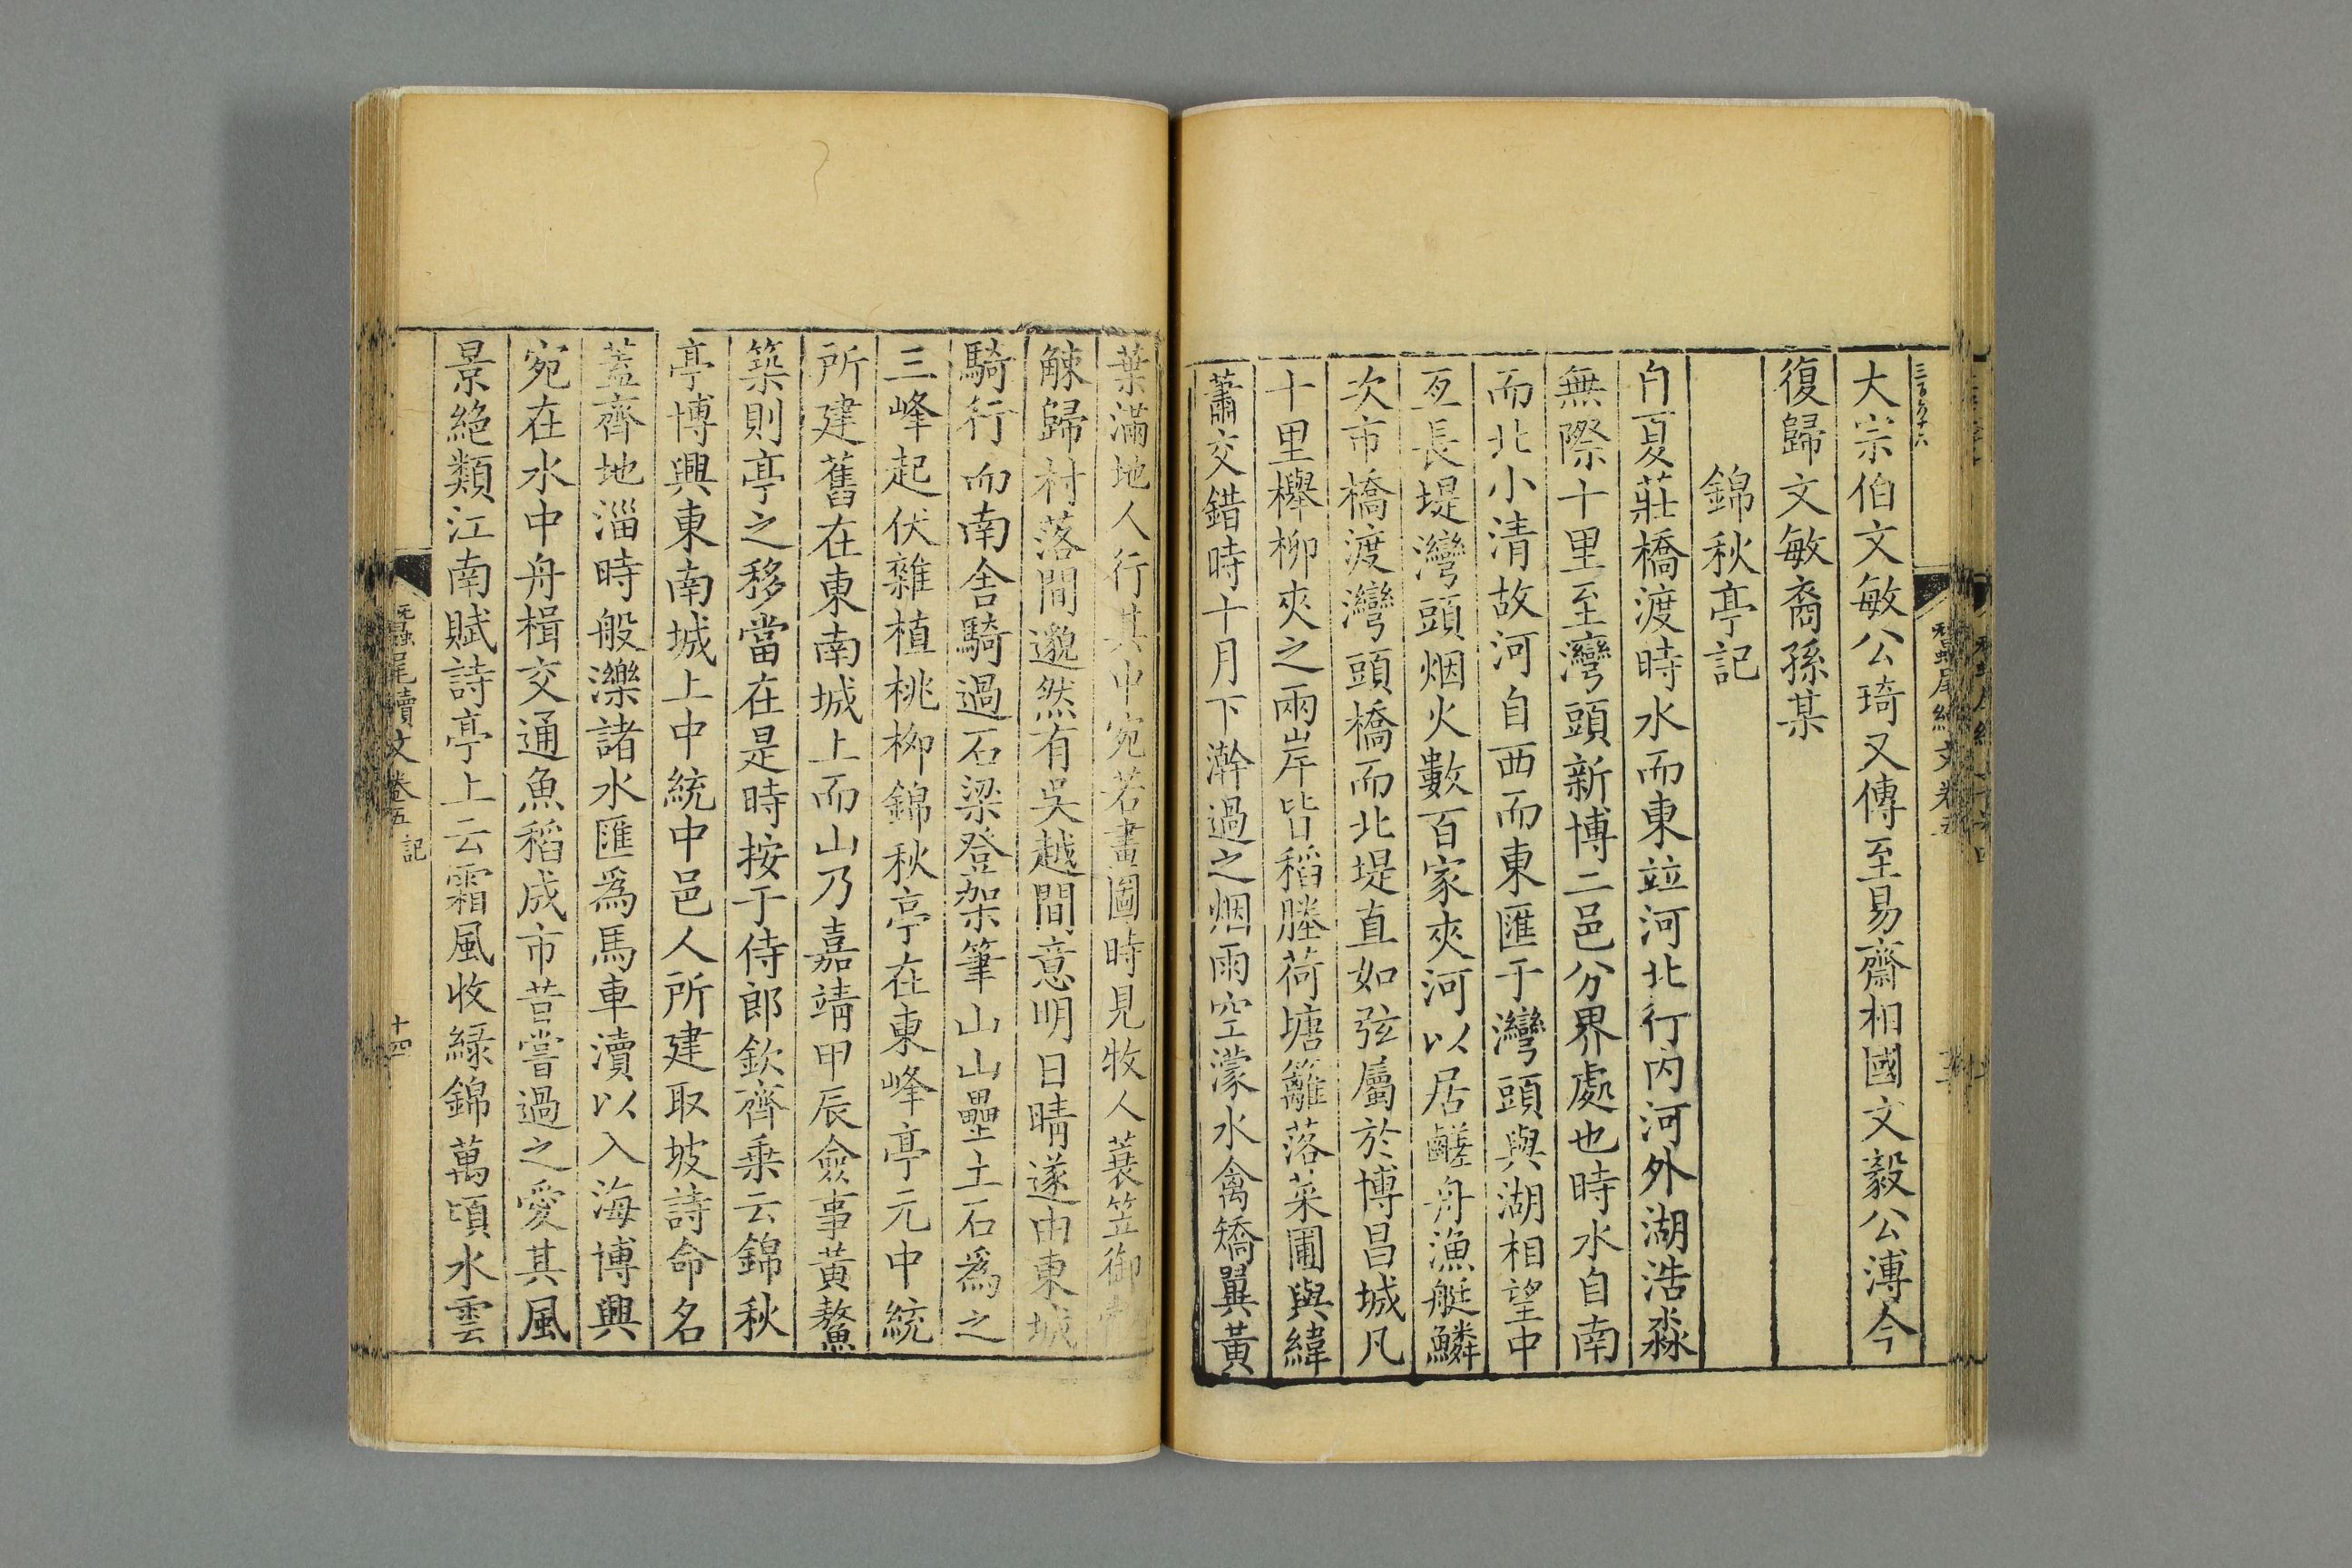 三百九十六
大宗伯文敏公琦又傳至易齋相國文毅公溥今
復歸文敏裔孫某
錦秋亭記
自夏莊橋渡時水而東竝河北行内河外湖浩淼
無際十里至灣頭新博二邑分界處也時水自南
而北小清故河自西而東匯于灣頭與湖相望中
亙長堤灣頭烟火數百家夾河以居鹺舟漁艇鱗
次市橋渡灣頭橋而北堤直如弦屬於博昌城凡
十里櫸柳夾之兩岸皆稻塍荷塘籬落菜圃與緯
蕭交錯時十月下澣過之烟雨空濛水禽矯翼黃
葉滿地人行其中宛若畫圖時見牧人蓑笠御觳
觫歸村落間邈然有吳越間意明日晴遂由東城
騎行而南舍騎過石梁登架筆山山壘土石爲之
三峰起伏雜植桃柳錦秋亭在東峰亭元中統
所建舊在東南城上而山乃嘉靖甲辰僉事黃鰲
築則亭之移當在是時按于侍郎欽齊乘云錦秋
亭博興東南城上中統中邑人所建取坡詩命名
蓋齊地淄時般濼諸水匯爲馬車瀆以入海博興
宛在水中舟楫交通魚稻成市昔嘗過之愛其風
景絶類江南賦詩亭上云霜風收緑錦萬頃水雲
蠶尾續文卷五 記
十四